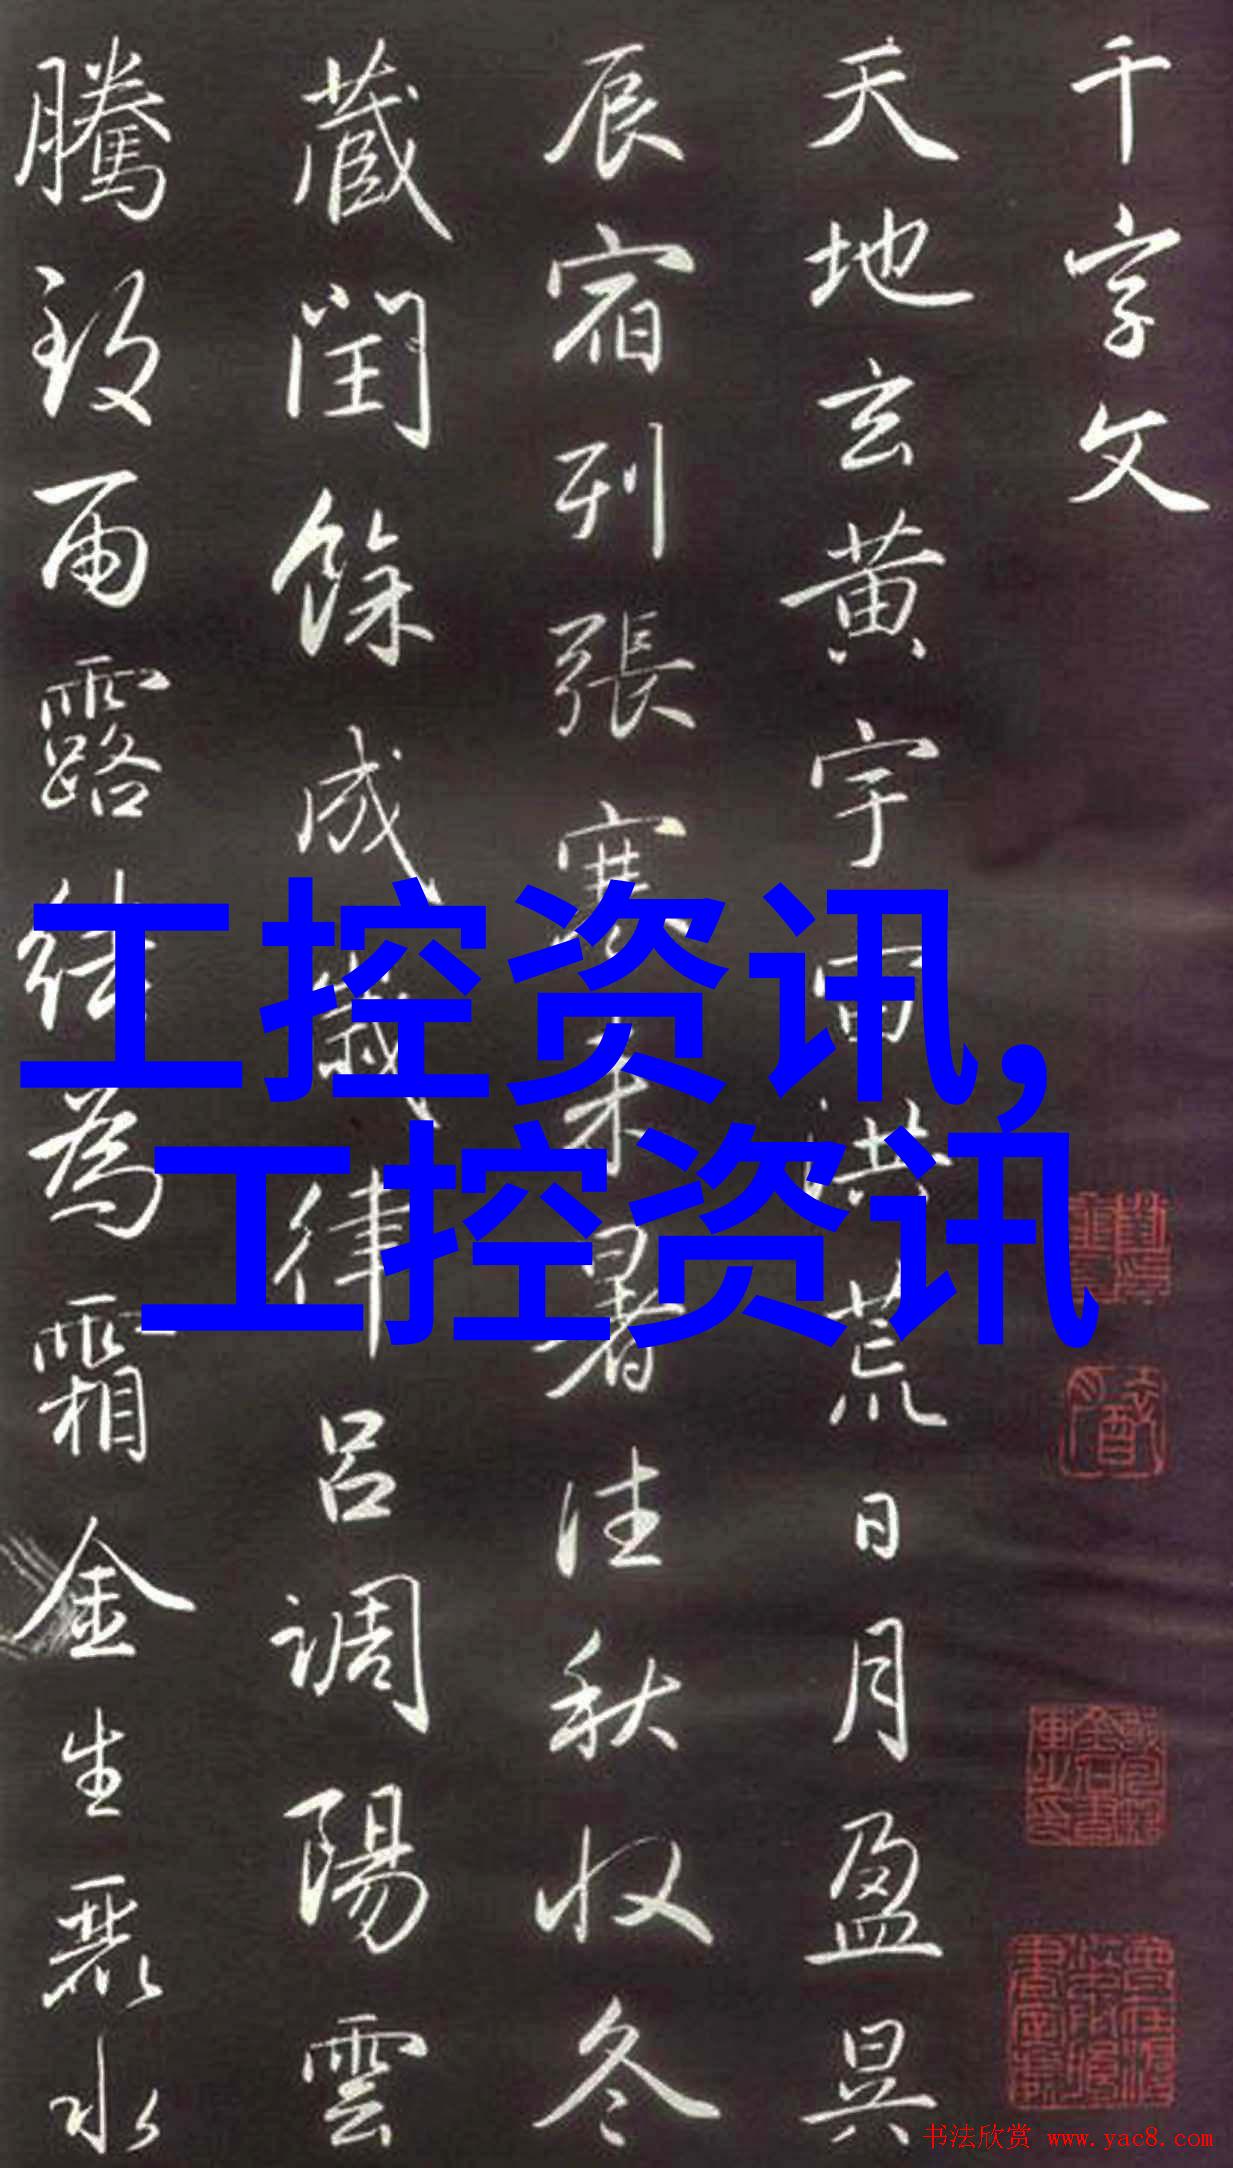 千字文
天地玄黄宇宙洪荒日月盈昃
辰宿列張寒来暑往秋收冬
藏閏餘成歲律呂調陽雲
騰致雨露结為霜金生麗水
工控资讯,
工控资讯
书法欣赏 www.yac8.com